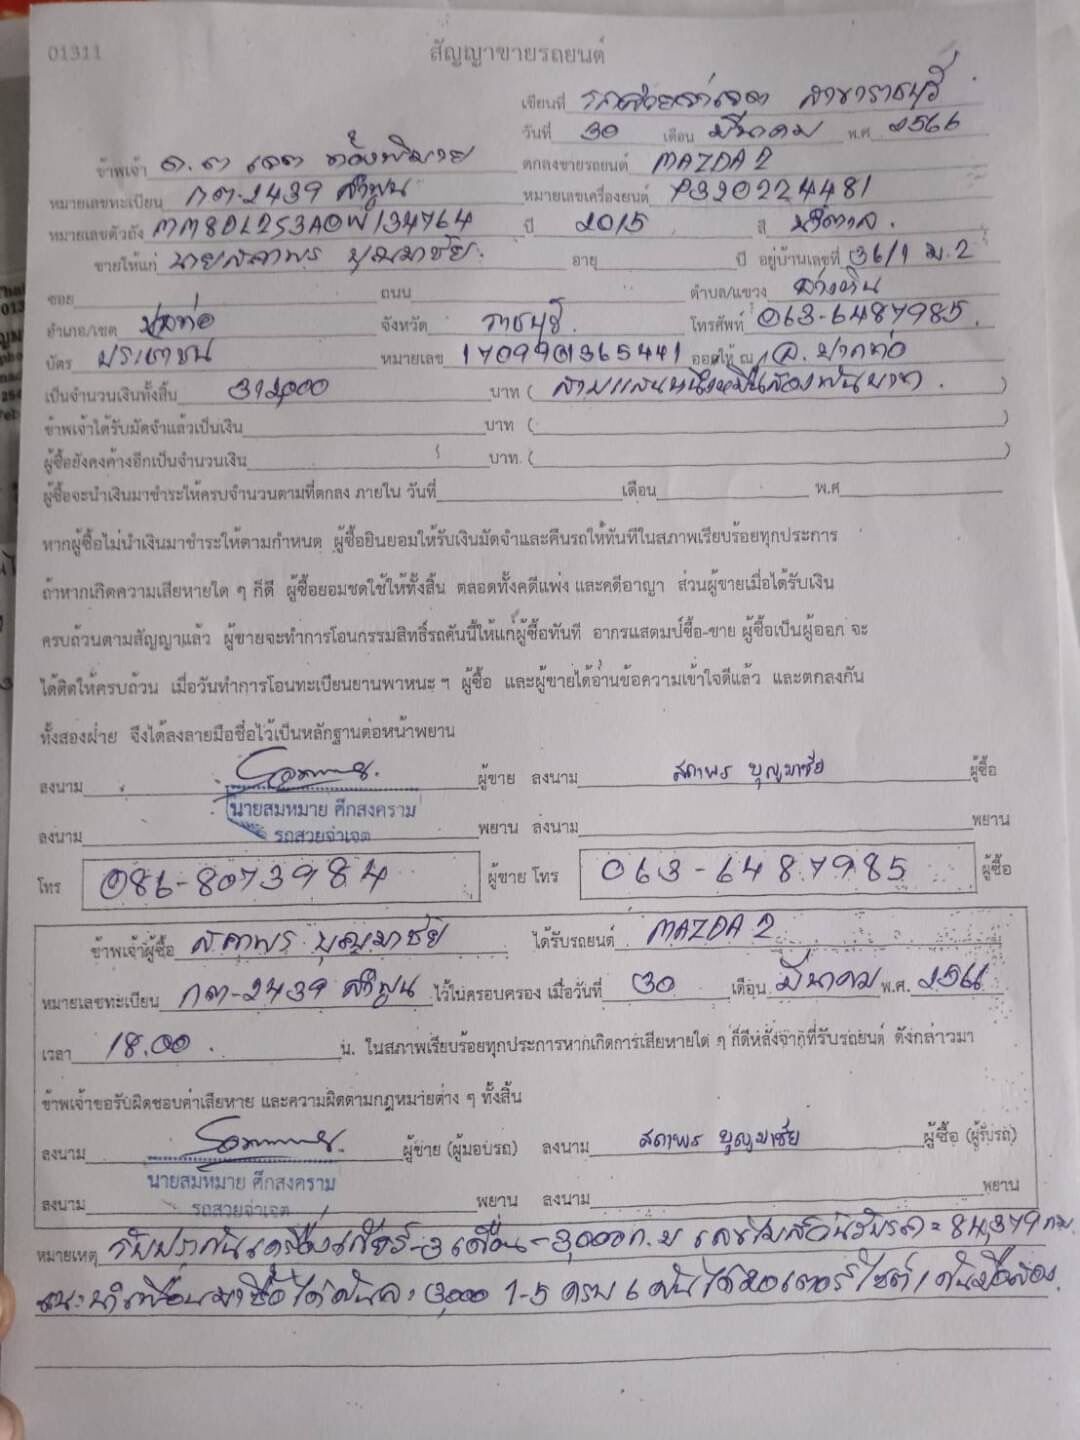 01311
สัญญาขายรถยนต์
เขียนที่ รถสวยจ่าเจต สาขาราชบุรี
วันที่ 30 เดือน มีนาคม พ.ศ. 2566
ข้าพเจ้า ด.ต เจต ตกลงขายรถยนต์ MAZDA 2
หมายเลขทะเบียน กต-2439 ลำพูน หมายเลขเครื่องยนต์ P320224481
หมายเลขตัวถัง MM8DL2S3A0W134764 ปี 2015 สี น้ำตาล
ขายให้แก่ นายสถาพร บุญมาชัย อายุ ปี อยู่บ้านเลขที่ 36/1 ม.2
ซอย ถนน ตำบล/แขวง อ่างหิน
อำเภอ/เขต ปากท่อ จังหวัด ราชบุรี. โทรศัพท์ 063-6487985.
บัตร ประชาชน หมายเลข 1709901365441 ออกให้ ณ อ.ปากท่อ
เป็นจำนวนเงินทั้งสิ้น 312,000 บาท ( สามแสนหนึ่งหมื่นสองพันบาท. )
ข้าพเจ้าได้รับมัดจำแล้วเป็นเงิน บาท ( )
ผู้ซื้อยังคงค้างอีกเป็นจำนวนเงิน บาท. ( )
ผู้ซื้อจะนำเงินมาชำระให้ครบจำนวนตามที่ตกลง ภายใน วันที่ เดือน พ.ศ
หากผู้ซื้อไม่นำเงินมาชำระให้ตามกำหนด ผู้ซื้อยินยอมให้รับเงินมัดจำและคืนรถให้ทันทีในสภาพเรียบร้อยทุกประการ
ถ้าหากเกิดความเสียหายใด ๆ ก็ดี ผู้ซื้อยอมชดใช้ให้ทั้งสิ้น ตลอดทั้งคดีแพ่ง และคดีอาญา ส่วนผู้ขายเมื่อได้รับเงิน
ครบถ้วนตามสัญญาแล้ว ผู้ขายจะทำการโอนกรรมสิทธิ์รถคันนี้ให้แก่ผู้ซื้อทันที อากรแสตมป์ซื้อ-ขาย ผู้ซื้อเป็นผู้ออก จะ
ได้ติดให้ครบถ้วน เมื่อวันทำการโอนทะเบียนยานพาหนะ ฯ ผู้ซื้อ และผู้ขายได้อ่านข้อความเข้าใจดีแล้ว และตกลงกัน
ทั้งสองฝ่าย จึงได้ลงลายมือชื่อไว้เป็นหลักฐานต่อหน้าพยาน
ลงนาม ผู้ขาย ลงนาม สถาพร บุญมาชัย ผู้ซื้อ
นายสมหมาย ศึกสงคราม
ลงนาม รถสวยจ่าเจต พยาน ลงนาม พยาน
โทร 086-8073984 ผู้ขาย โทร 063-6487985 ผู้ซื้อ
ข้าพเจ้าผู้ซื้อ สถาพร บุญมาชัย ได้รับรถยนต์ MAZDA 2
หมายเลขทะเบียน กต-2439 ลำพูน ไว้ในครอบครอง เมื่อวันที่ 30 เดือน มีนาคม พ.ศ. 2566
เวลา 18.00 น. ในสภาพเรียบร้อยทุกประการหากเกิดการเสียหายใด ๆ ก็ดีหลังจากที่รับรถยนต์ ดังกล่าวมา
ข้าพเจ้าขอรับผิดชอบค่าเสียหาย และความผิดตามกฎหมายต่าง ๆ ทั้งสิ้น
ลงนาม ผู้ขาย (ผู้มอบรถ) ลงนาม สถาพร บุญมาชัย ผู้ซื้อ (ผู้รับรถ)
นายสมหมาย ศึกสงคราม
ลงนาม รถสวยจ่าเจต พยาน ลงนาม พยาน
หมายเหตุ รับประกันเครื่องเกียร์-3 เดือน-3,000 ก.ม เลขไมล์วันรับรถ = 84,379 กม.
แนะนำเพื่อนมาซื้อได้คันละ 3,000 1-5 ครบ 6 คันได้มอเตอร์ไซต์ 1 คันมือสอง.